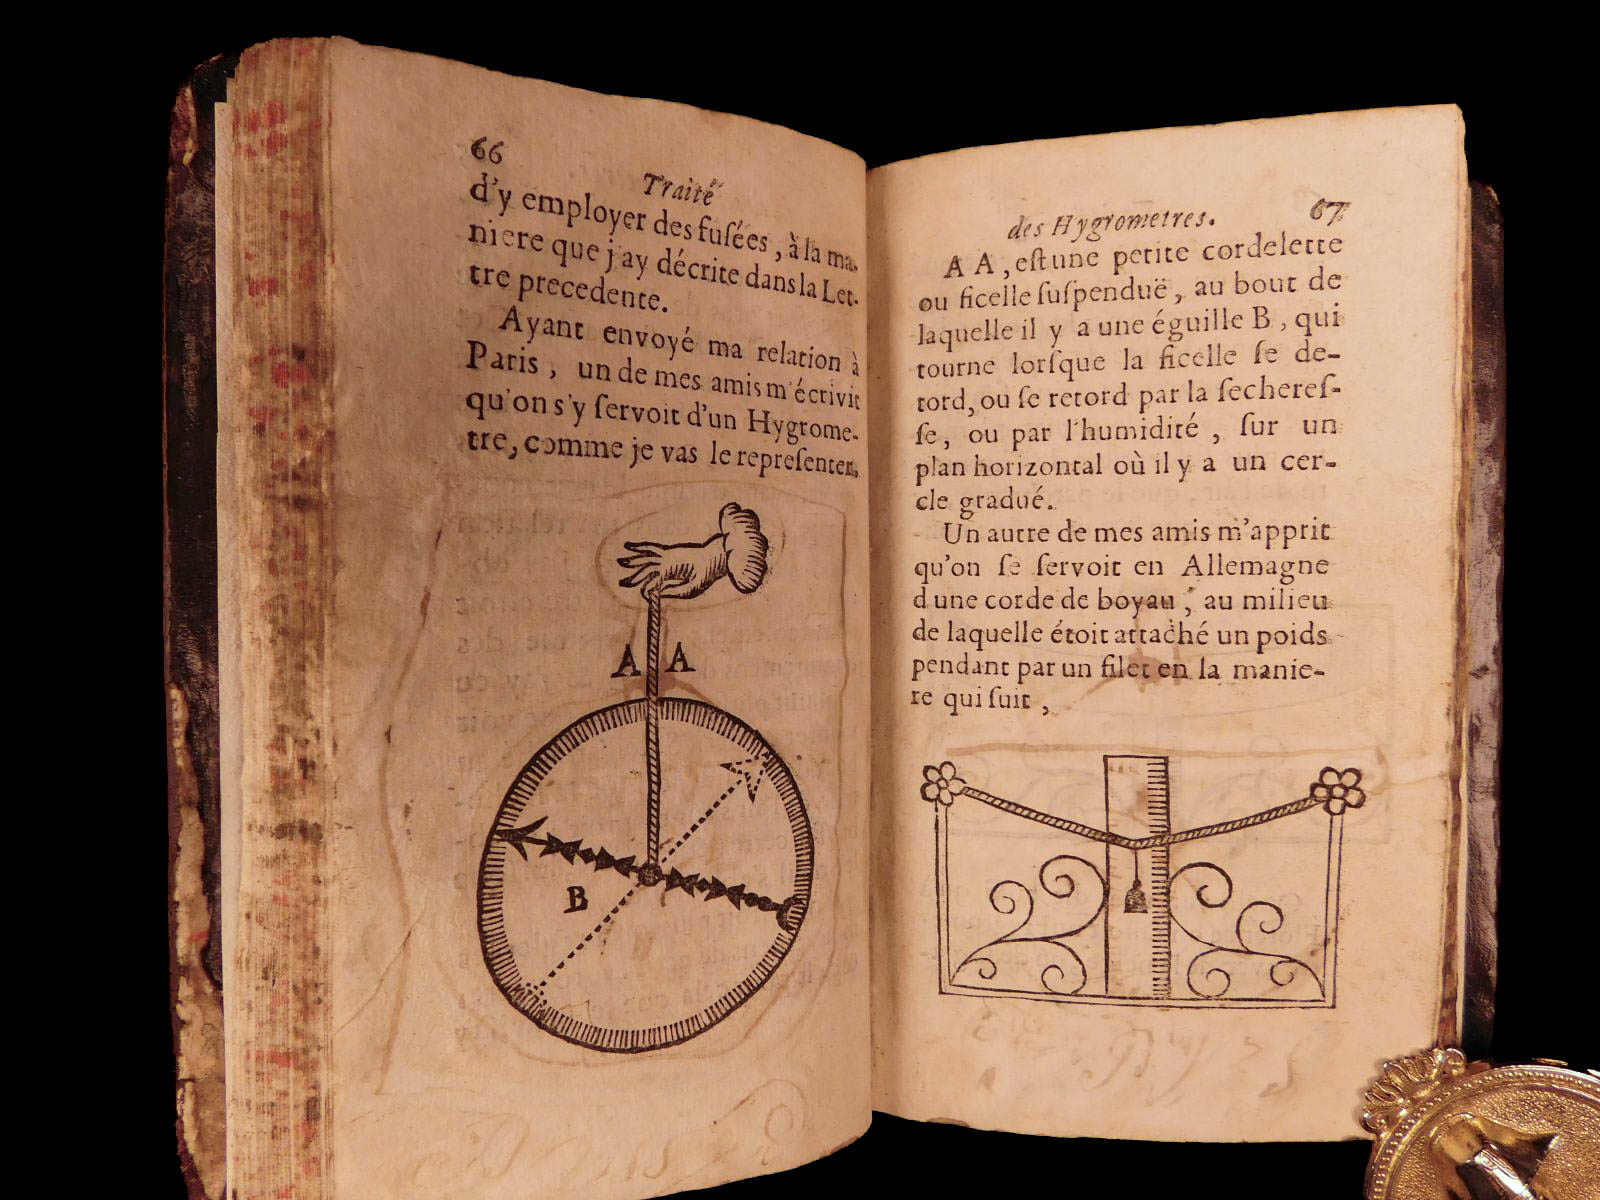 66
Traité
d'y employer des fuſées, à la ma-
niere que j'ay décrite dans la Let-
tre precedente.
Ayant envoyé ma relation à
Paris, un de mes amis m'écrivit
qu'on s'y ſervoit d'un Hygrome-
tre, comme je vas le repreſenter.
A A
B
des Hygrometres. 67
A A, eſt une petite cordelette
ou ficelle ſuſpenduë, au bout de
laquelle il y a une éguille B, qui
tourne lorſque la ficelle ſe de-
tord, ou ſe retord par la ſechereſ-
ſe, ou par l'humidité, ſur un
plan horizontal où il y a un cer-
cle gradué.
Un autre de mes amis m'apprit
qu'on ſe ſervoit en Allemagne
d'une corde de boyau, au milieu
de laquelle étoit attaché un poids
pendant par un filet en la manie-
re qui ſuit,